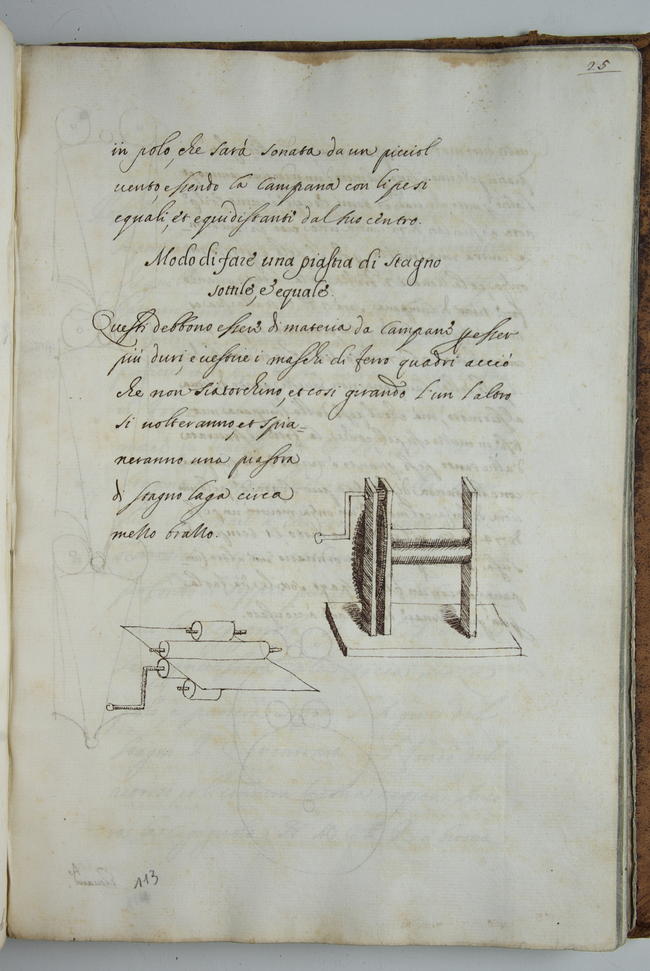 25
in polo, che sarà sonata da un picciol
vento, essendo la campana con li pesi
equali, et equidistanti dal suo centro.
Modo di fare una piastra di stagno
sottile, e equale.
Questi debbono esser di materia da campane p esser
piu duri, e vestire i maschi di ferro quadri acciò
che non si storchino, et cosi girando l'un l'altro
si volteranno, et spia=
neranno una piastra
di stagno laga circa
mezzo bratto.
113